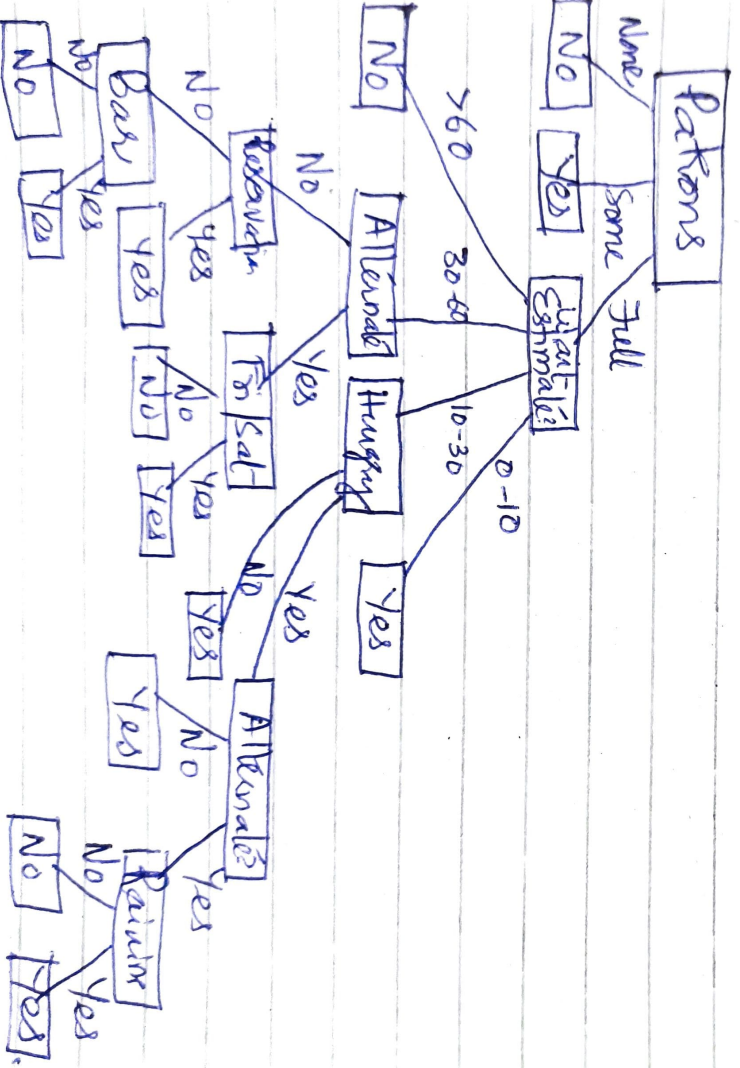 Patrons
None Some Full
No Yes Wait Estimate?
>60 30-60 10-30 0-10
No Alternate Hungry Yes
No Yes No Yes
Reservation Fri/Sat Yes Alternate?
No Yes No Yes No Yes
Bar Yes No Yes Yes Raining
No Yes No Yes
No Yes No Yes.